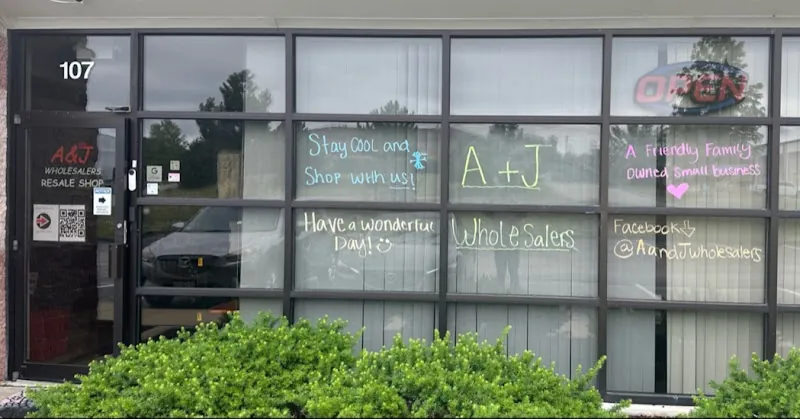 107
A&J
WHOLESALERS
RESALE SHOP
Stay COOL and
Shop with us!
Have a wonderful
Day!
A + J
WholeSalers
OPEN
A Friendly Family
owned small business
Facebook
@AandJwholesalers